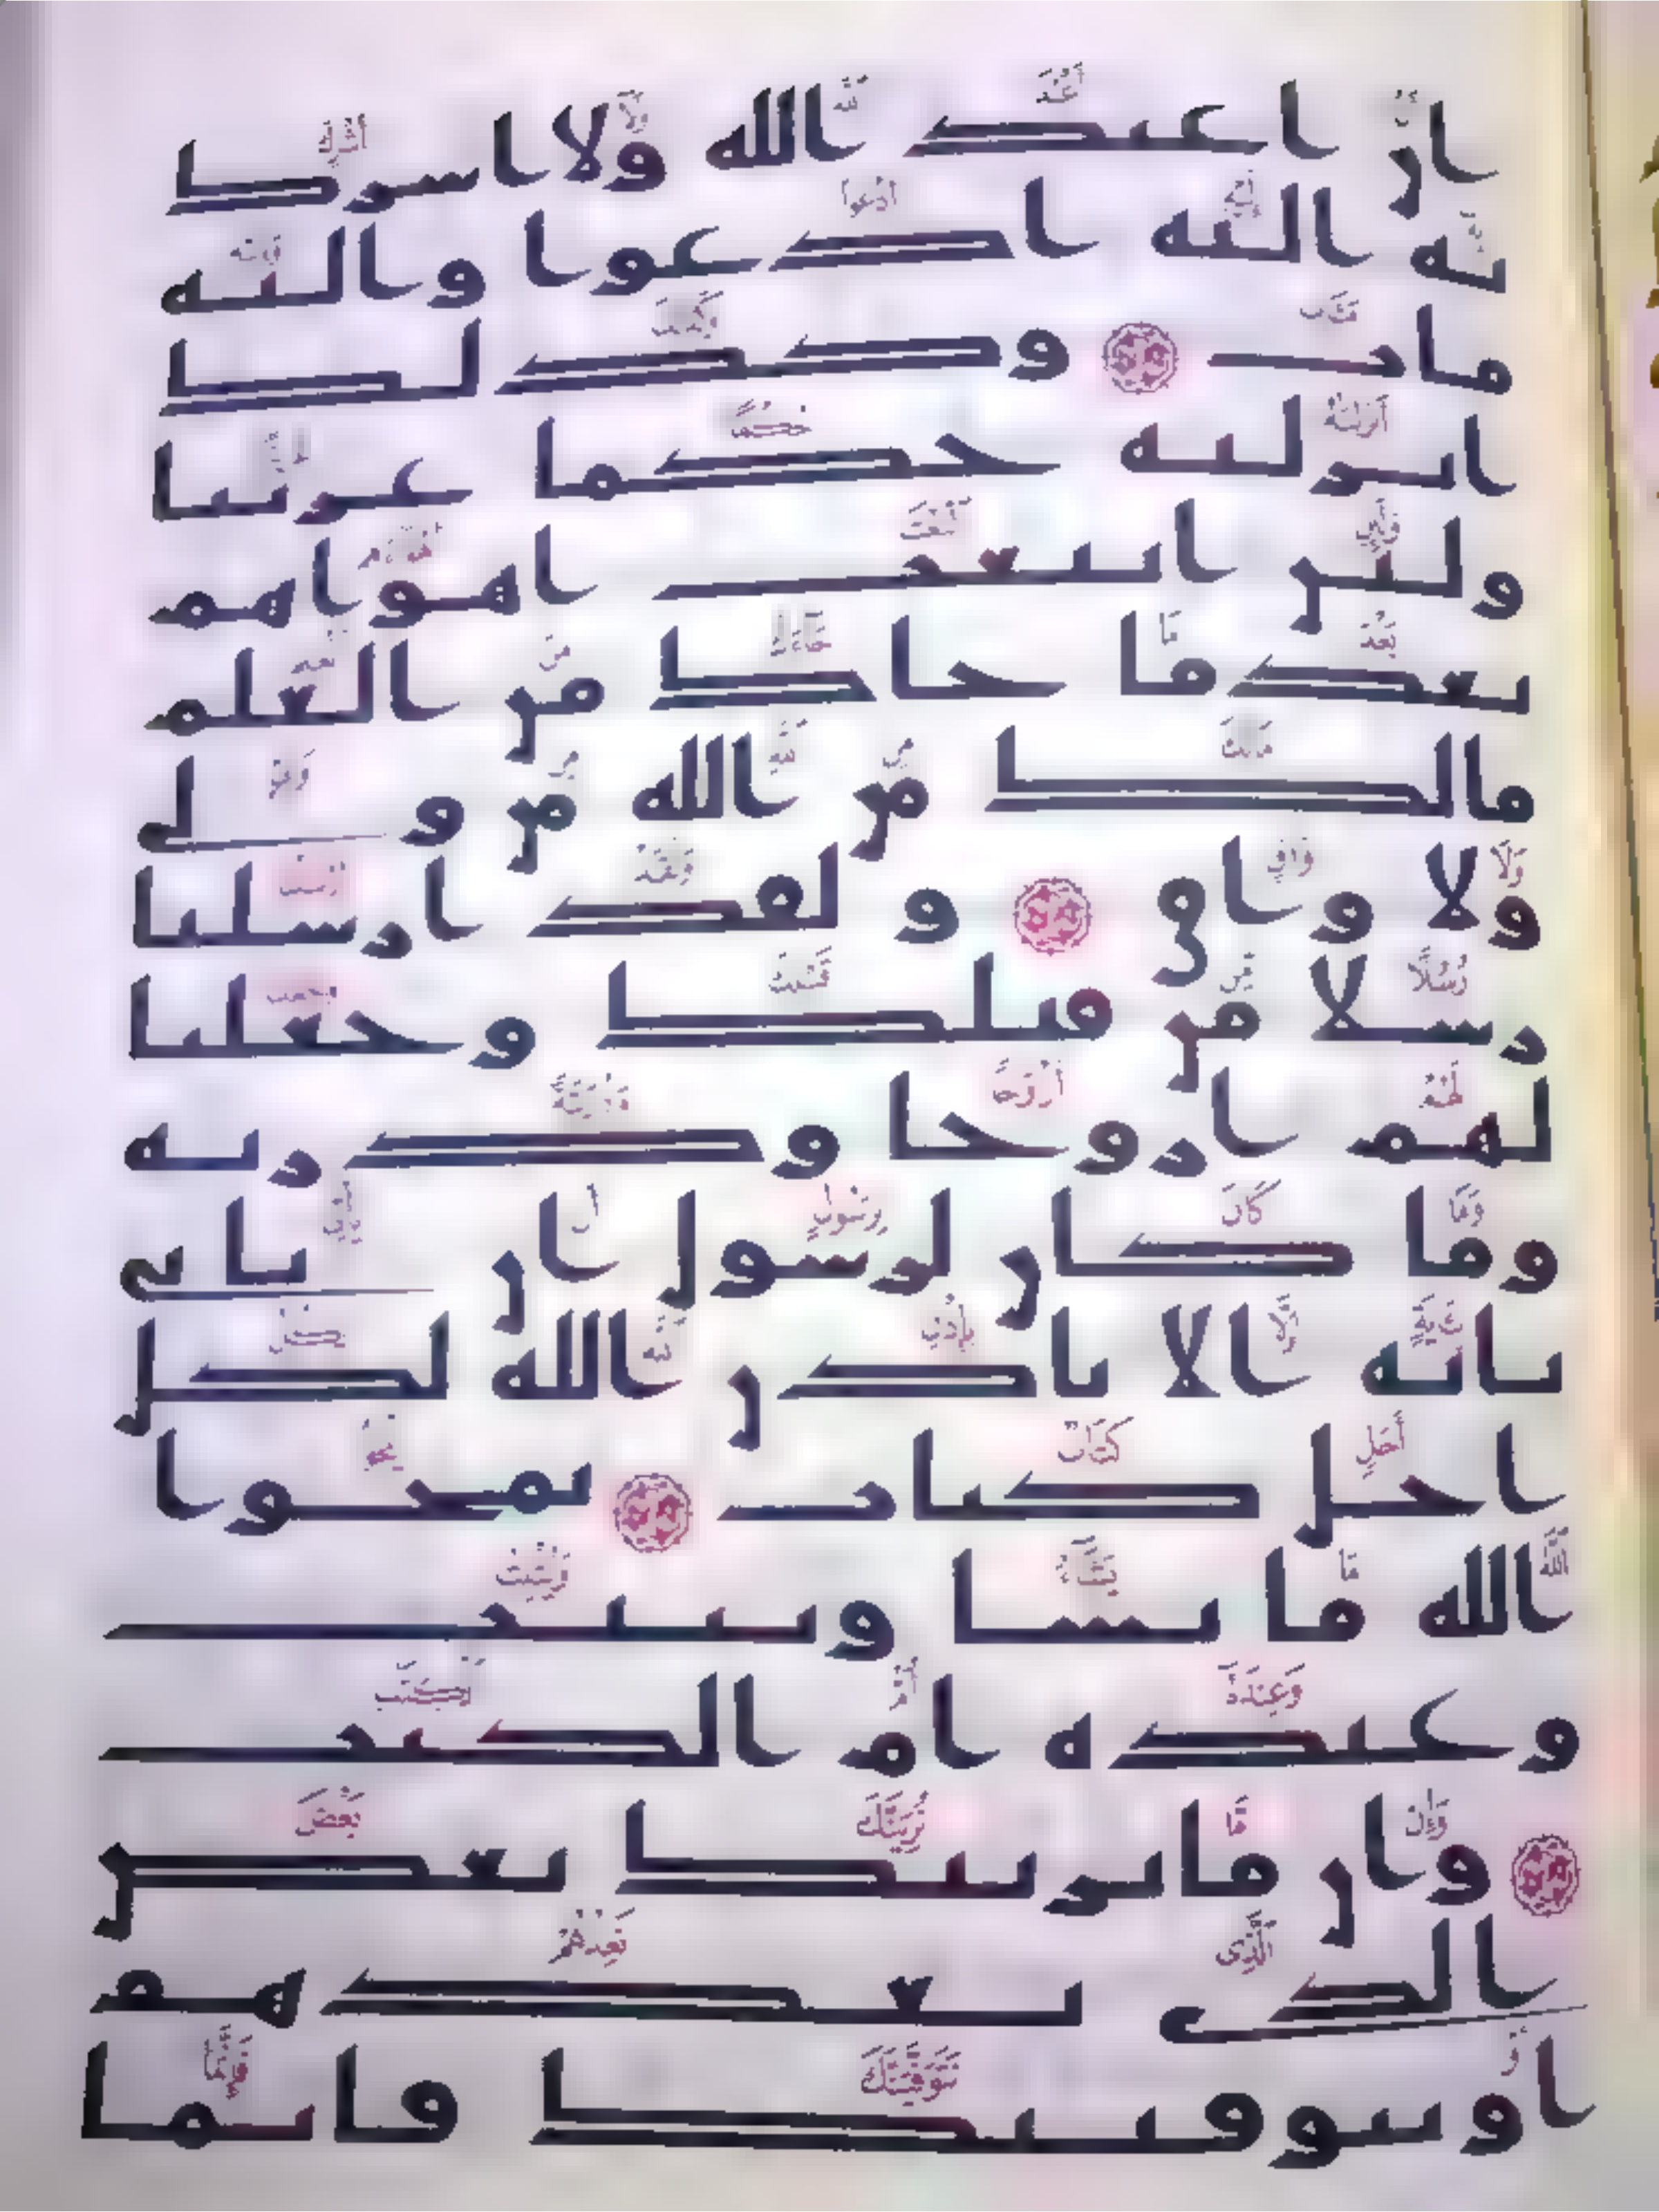 ان اعبد الله ولا اشرك
به اليه ادعوا واليه
ماب وكذلك
انزلنه حكما عربيا
ولئن اتبعت اهواهم
بعد ما جاك من العلم
مالك من الله من ولي
ولا واق ولقد ارسلنا
رسلا من قبلك وجعلنا
لهم ازوجا وذرية
وما كان لرسول ان ياتي
باية الا باذن الله لكل
اجل كتاب يمحوا
الله ما يشا ويثبت
وعنده ام الكتب
وان ما نرينك بعض
الذي نعدهم
او نتوفينك فانما